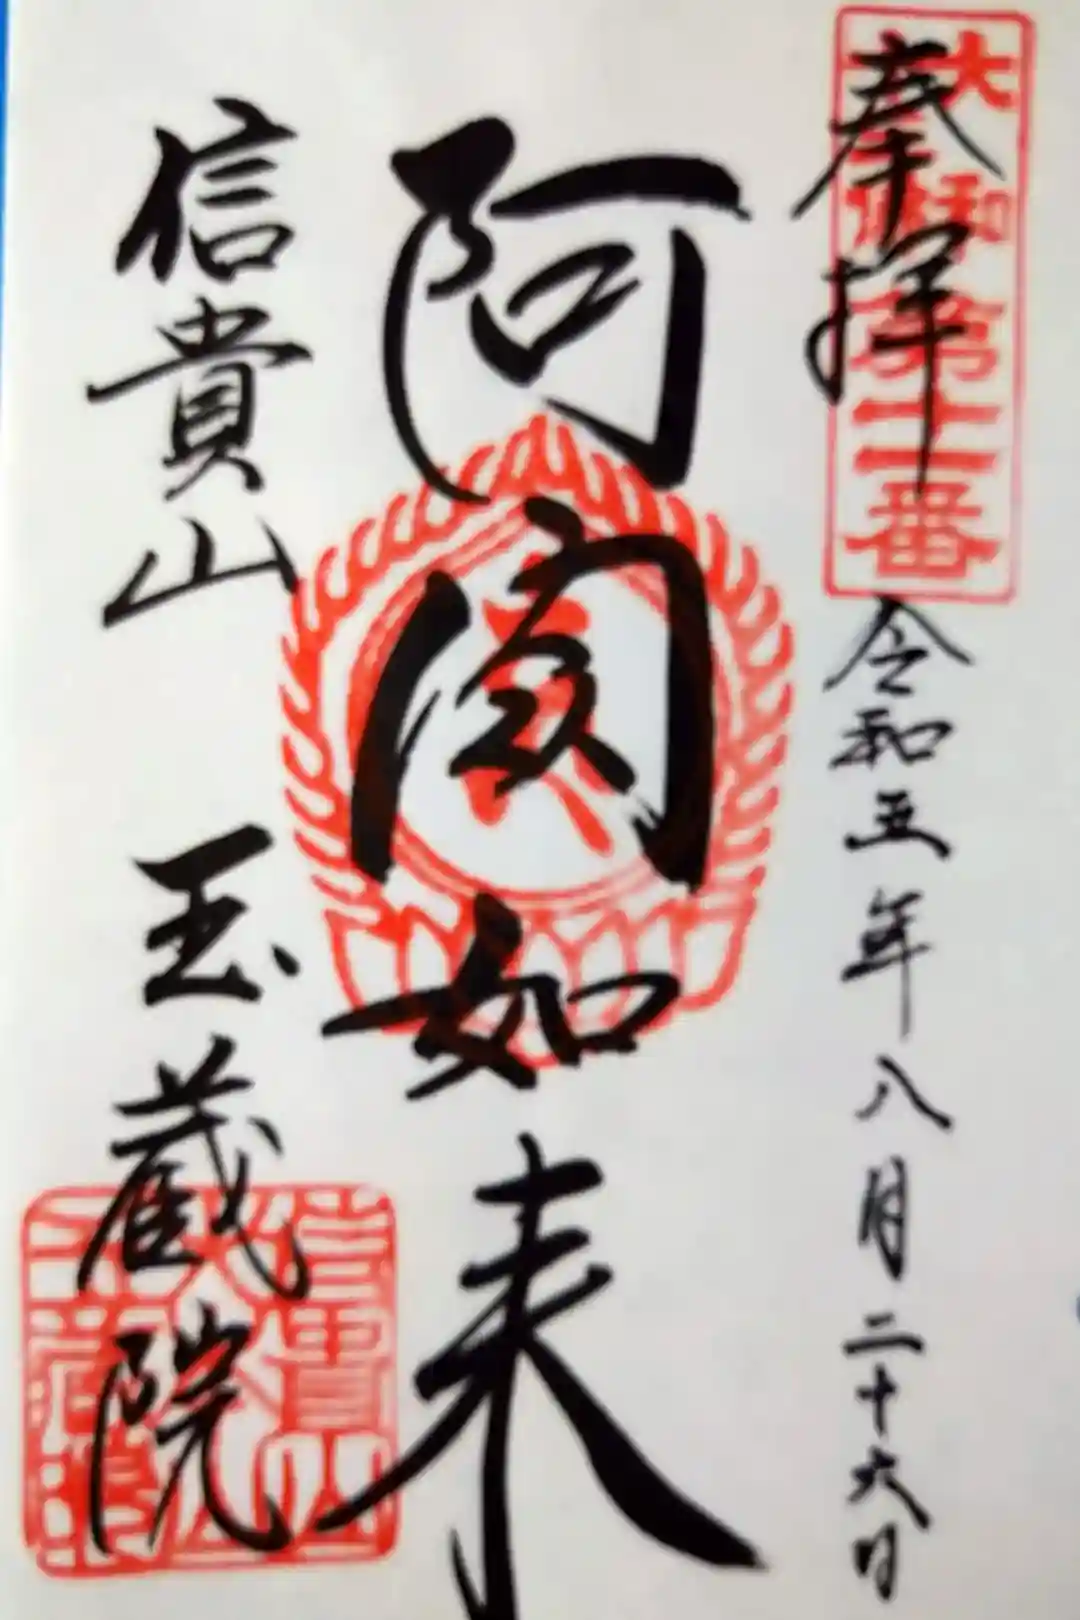 奉拝
大和
第十一番
令和五年八月二十六日
阿閦如来
信貴山
玉蔵院